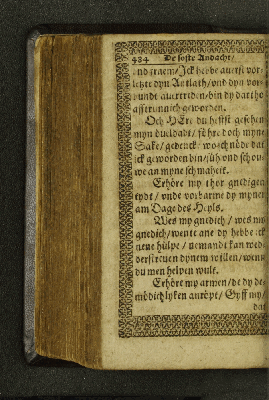 484 De soste Andacht/
und truem/ Ick hebbe averst vor-
letzet dyn Aetlath/ und dyn vor-
bundt avertreden/ bin dy datt tho
affträunnich geworden.
Och HEre du heffst gesehen
myn duldadt/ föhre doch myne
Sake/ gedenck/ wo ick nöde dat
ick geworden bin/ süh und schou-
we an myne schmaheit.
Erhöre my thor gnedigen
tydt/ unde vorbarme dy myner
am Dage des Heyls.
Wes my gnedich/ wes my
gnedich/ wente ane dy hebbe ick
nene hülpe/ nemandt kan wed-
derstreuen dynem willen/ wenn
du men helpen wult.
Erhöre my armen/ de dy de-
mödichlyken anröpt/ Gyff my/
dat